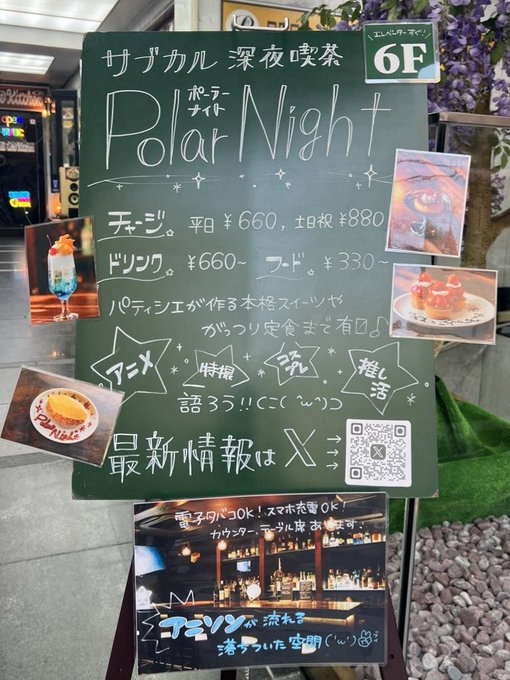 エレベーターすぐ!
6F
サブカル 深夜喫茶
ポーラー
ナイト
Polar Night
チャージ 平日 ¥660, 土日祝 ¥880
ドリンク ¥660~ フード ¥330~
パティシエが作る本格スイーツや
がっつり定食まで有♪
アニメ
特撮
コスプレ
推し活
語ろう!!⊂ニ( ˙ω˙)⊃
最新情報は X
電子タバコOK! スマホ充電OK!
カウンター、テーブル席あります
アニソンが流れる
落ちついた空間('ω')